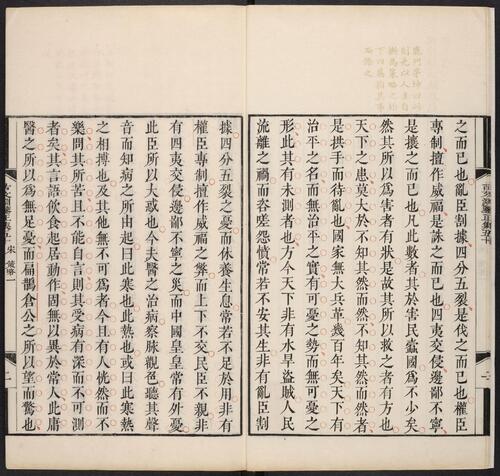 之而已也亂臣割據四分五裂是伐之而已也權臣
專制擅作威福是誅之而已也四夷交侵邊鄙不寧
是攘之而已也凡此數者其於害民蠹國爲不少矣
然其所以爲害者有狀是故其所以救之者有方也
天下之患莫大於不知其然而然不知其然而然者
是拱手而待亂也國家無大兵革幾百年矣天下有
治平之名而無治平之實有可憂之勢而無可憂之
形此其有未測者也方今天下非有水旱盜賊人民
流離之禍而咨嗟怨憤常若不安其生非有亂臣割
據四分五裂之憂而休養生息常若不足於用非有
權臣專制擅作威福之弊而上下不交君臣不親非
有四夷交侵邊鄙不寧之災而中國皇皇常有外憂
此臣所以大惑也今夫醫之治病察脈觀色聽其聲
音而知病之所由起曰此寒也此熱也或曰此寒熱
之相搏也及其他無不可爲者今且有人恍然而不
樂問其所苦且不能自言則其受病有深而不可測
者矣其言語飲食起居動作固無以異於常人此庸
醫之所以爲無足憂而扁鵲倉公之所以望而驚也